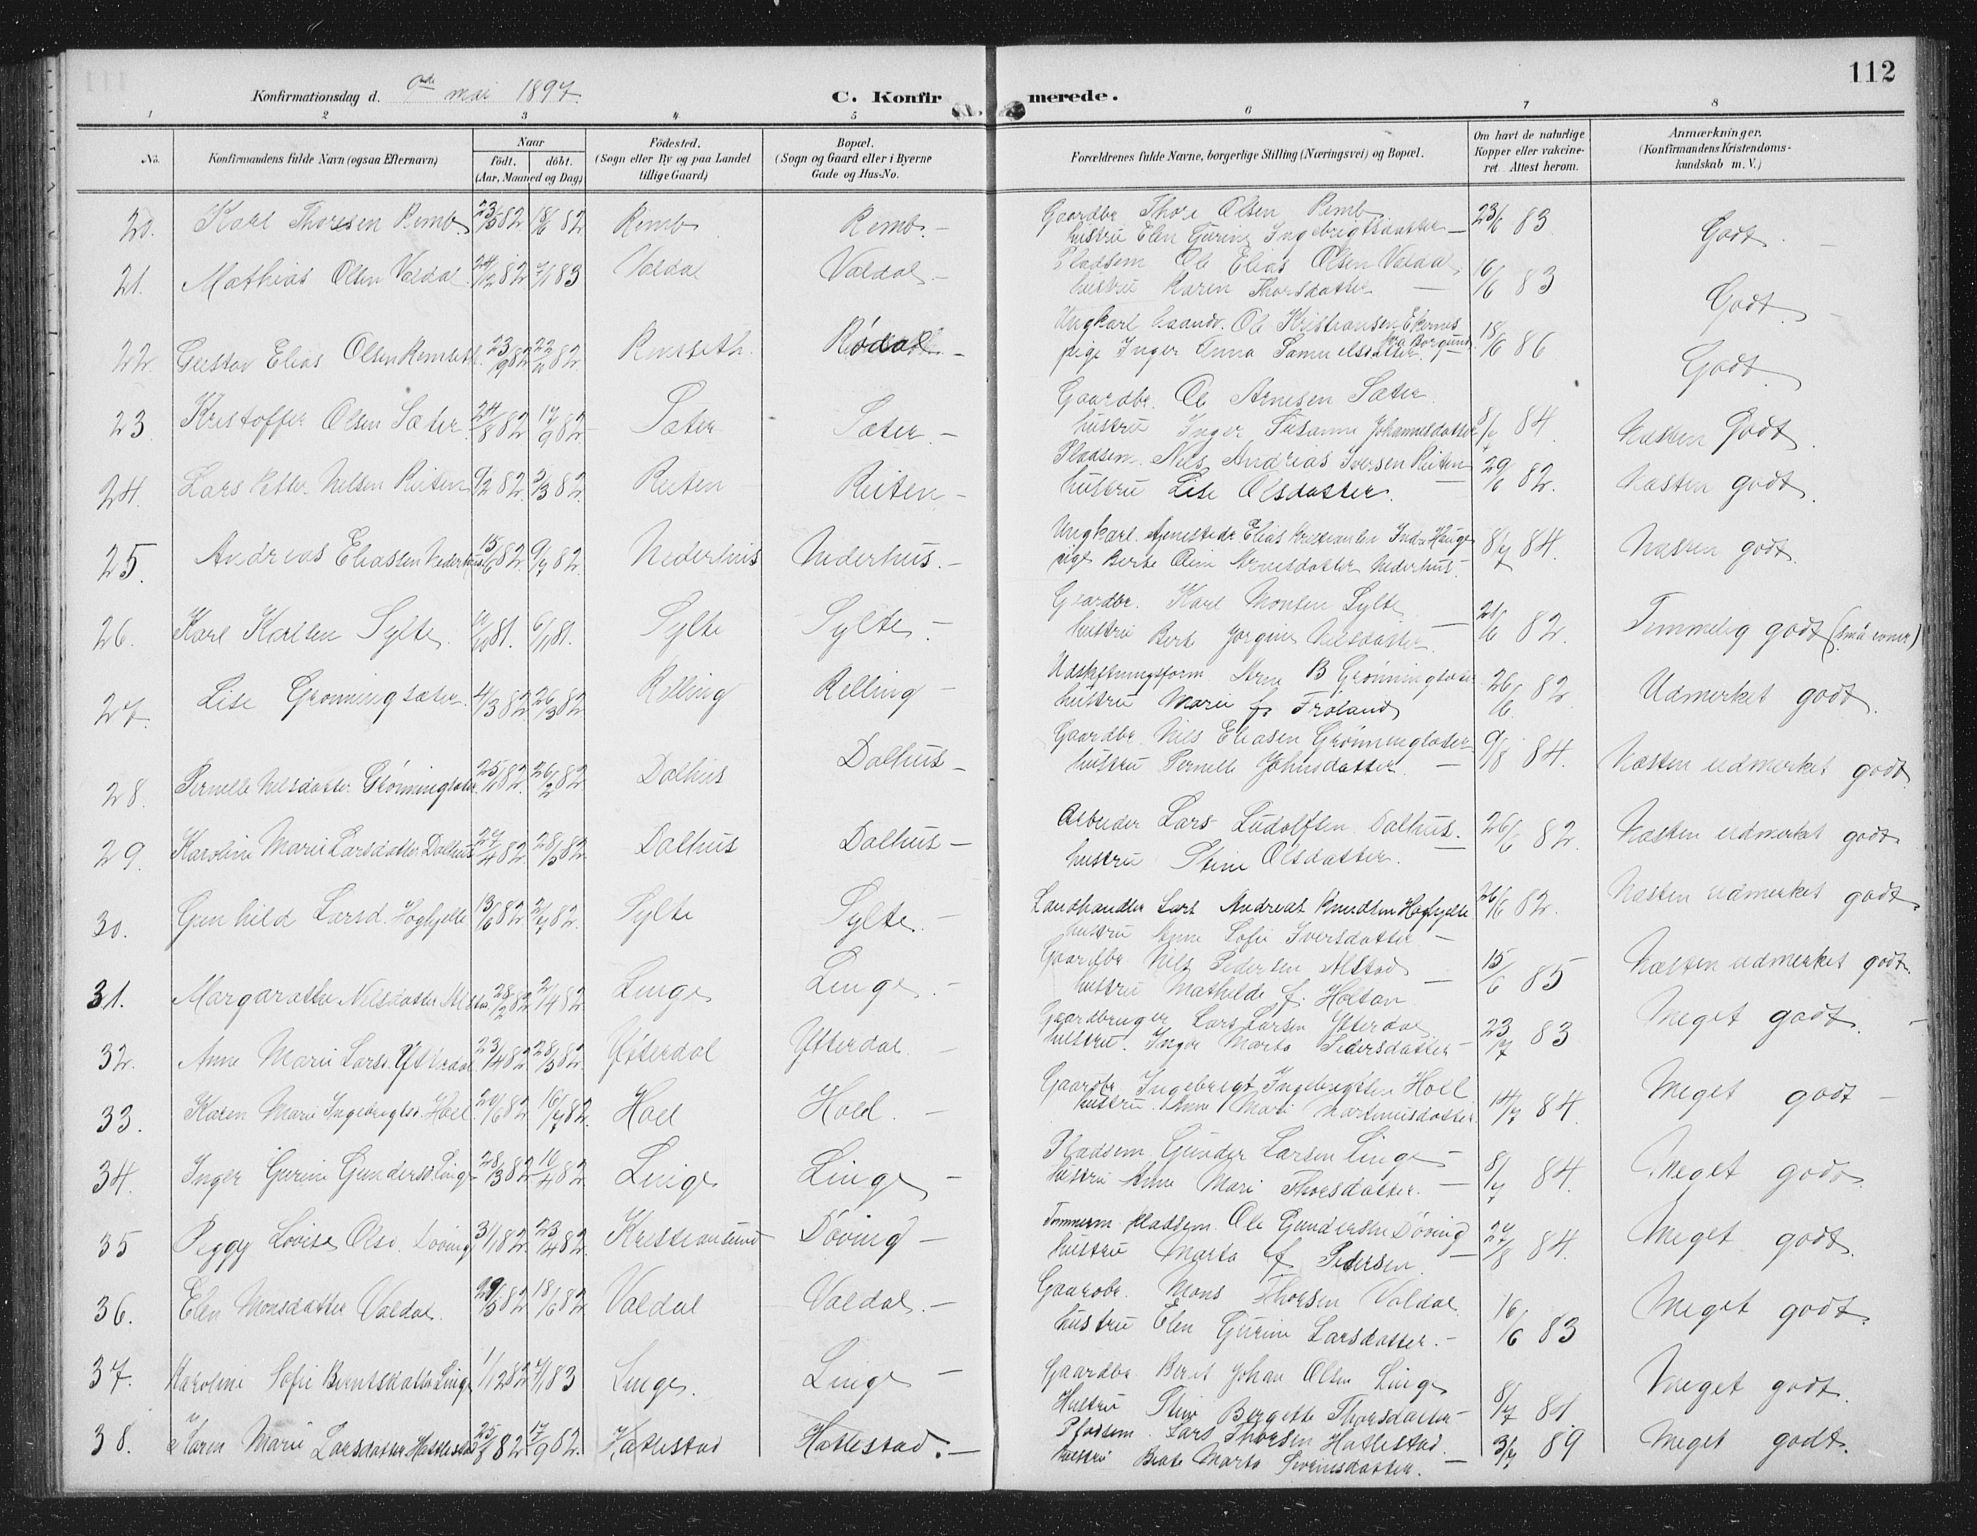 112
Konfirmationsdag d. mai 1897.
C. Konfirmerede.
1 2 3 4 5 6 7 8
No. Konfirmandens fulde Navn (ogsaa Efternavn) Naar født. døbt. (Aar, Maaned og Dag) Fødested. (Sogn eller By og paa Landet tillige Gaard) Bopæl. (Sogn og Gaard eller i Byerne Gade og Hus-No. Forældrenes fulde Navne, borgerlige Stilling (Næringsvei) og Bopæl. Om havt de naturlige Kopper eller vakcineret. Attest herom. Anmærkninger. (Konfirmandens Kristendomskundskab m. V.)
20. Karl Thoresen Remb. 23/5 82 18/6 82 Remb Remb. - Gaardbr. Thore Olsen Remb 23/6 83 Godt.
hustru Elen Gurine Ingebrigtsdatter -
21. Mathias Olsen Valdal 24/12 82 7/1 83 Valdal Valdal - Pladsem. Ole Elias Olsen Valdal, 16/6 83 Godt.
hustru Karen Thorsdatter -
22. Gustav Elias Olsen Remseth. 23/9 82 Remseth. Rødal - Ungkarl Ole Kristiansen Ekornes fra Borgund 18/6 86 Godt.
pige Inger Anna Samuelsdatter. -
23. Kristoffer Olsen Sæter. 24/8 82 17/9 82 Sæter Sæter. - Gaardbr. Ole Arnesen Sæter. 8/7 84. Næsten Godt.
hustru Inger Susanne Johannesdatter
24. Lars Petter Nilsen Reiten 9/2 82 5/3 82 Reiten Reiten - Pladsem. Nils Andreas Iversen Reiten 29/6 82. Næsten godt.
hustru Lise Olsdatter.
25. Andreas Eliassen Nederhus 15/6 82 9/7 82. Nederhus Nederhus. - Ungkarl Elias Kristiansen Indre Hauge 8/7 84. Næsten godt.
pige Berte Oline Arnesdatter Nederhus.
26. Karl Karlsen Sylte. 81. 6/11 81. Sylte Sylte. - Gaardbr. Karl Monsen Sylte 21/6 82. Temmelig godt (små evner)
hustru Berte Jorgine Nilsdatter.
27. Lise Grønningsæter 4/3 82 26/3 82 Relling Relling - Udskiftningsform. Arne B Grønningsæter 26/6 82. Udmerket godt.
hustru Marie f. Frøland
28. Pernelle Nilsdatter Grønningsæter. 25/1 82. 26/2 82 Dalhus Dalhus - Gaardbr. Nils Eliasen Grønningsæter 9/8 84. Næsten udmerket godt.
hustru Pernille Johnsdatter. -
29. Karoline Marie Larsdatter Dalhus 27/4 82 28/5 82. Dalhus Dalhus - Arbeider Lars Ludolfsen Dalhus. 26/6 82. Næsten udmerket godt
hustru Stine Olsdatter.
30. Gunhild Larsd. Høgkjelle 13/6 82 2/7 82. Sylte Sylte. - Landhandler Lars Andreas Knudsen Høgkjelle 26/6 82. Næsten udmerket godt.
hustru Anne Sofie Iversdatter -
31. Margarethe Nilsdatter Alstad 28/2 82 2/4 82. Linge Linge. - Gaardbr. Nils Pedersen Alstad 15/6 85 Næsten udmerket godt.
hustru Mathilde f. Holtan
32. Anne Marie Larsd. Ytterdal 23/4 82 Ytterdal Ytterdal. - Gaardbruger Lars Larsen Ytterdal 23/7 83 Meget godt.
hustru. Inger Marta Pedersdatter -
33. Karen Marie Ingebrigtsd. Hoel 24/6 82 16/7 82. Hoel Hoel. - Gaardbr. Ingebrigt Ingebrigtsen Hoel 14/7 84. Meget godt
hustru. Anne Mari Martinusdatter
34. Inger Gurine Gundersd. Linge 28/3 82 16/4 82 Linge Linge - Pladsem. Gunder Larsen Linge - 8/7 84. Meget godt.
hustru Anne Mari Thorsdatter. -
35 Peggy Lovise Olsd. Døving 3/1 82. 23/4 82. Kristiansund Døving - Tømmerm. Pladsem. Ole Gundersen Døving 27/8 84. Meget godt.
hustru Marta f. Pedersen. -
36. Elen Monsdatter Valdal. 29/5 82. 18/6 82. Valdal Valdal. - Gaardbr. Mons Thorsen Valdal 16/6 83 Meget godt.
hustru Elen Gurine Larsdatter. -
37. Karoline Sofie Berntsdatter Linge 1/12 82. 7/1 83 Linge. Linge - Gaardbr. Bernt Johan Olsen Linge 8/7 84 Meget godt.
Hustru Stine Bergette Thorsdatter -
38. Karen Marie Larsdatter Hattlestad 25/8 82. 17/9 82. Hatlestad Hatlestad. - Pladsem. Lars Thorsen Hatlestad. 3/7 89 Meget godt.
hustru Beate Marta Severinsdatter. -